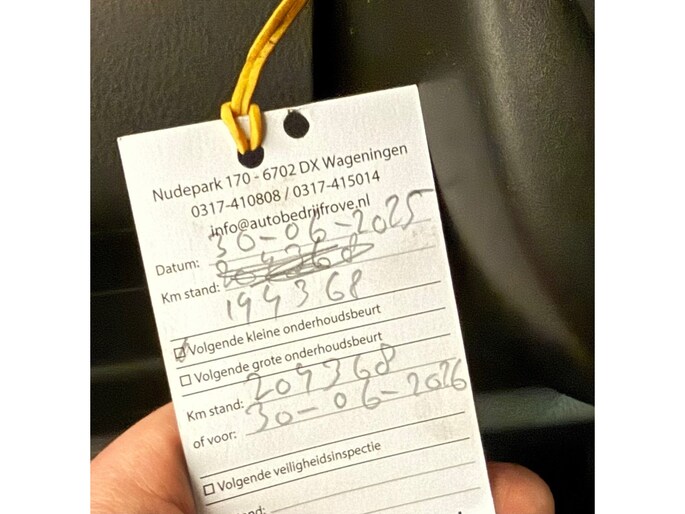 Nudepark 170 - 6702 DX Wageningen
0317-410808 / 0317-415014
info@autobedrijfrove.nl
Datum: 30-06-2025
Km stand:
194368
Volgende kleine onderhoudsbeurt
Volgende grote onderhoudsbeurt
Km stand: 204368
of voor: 30-06-2026
Volgende veiligheidsinspectie